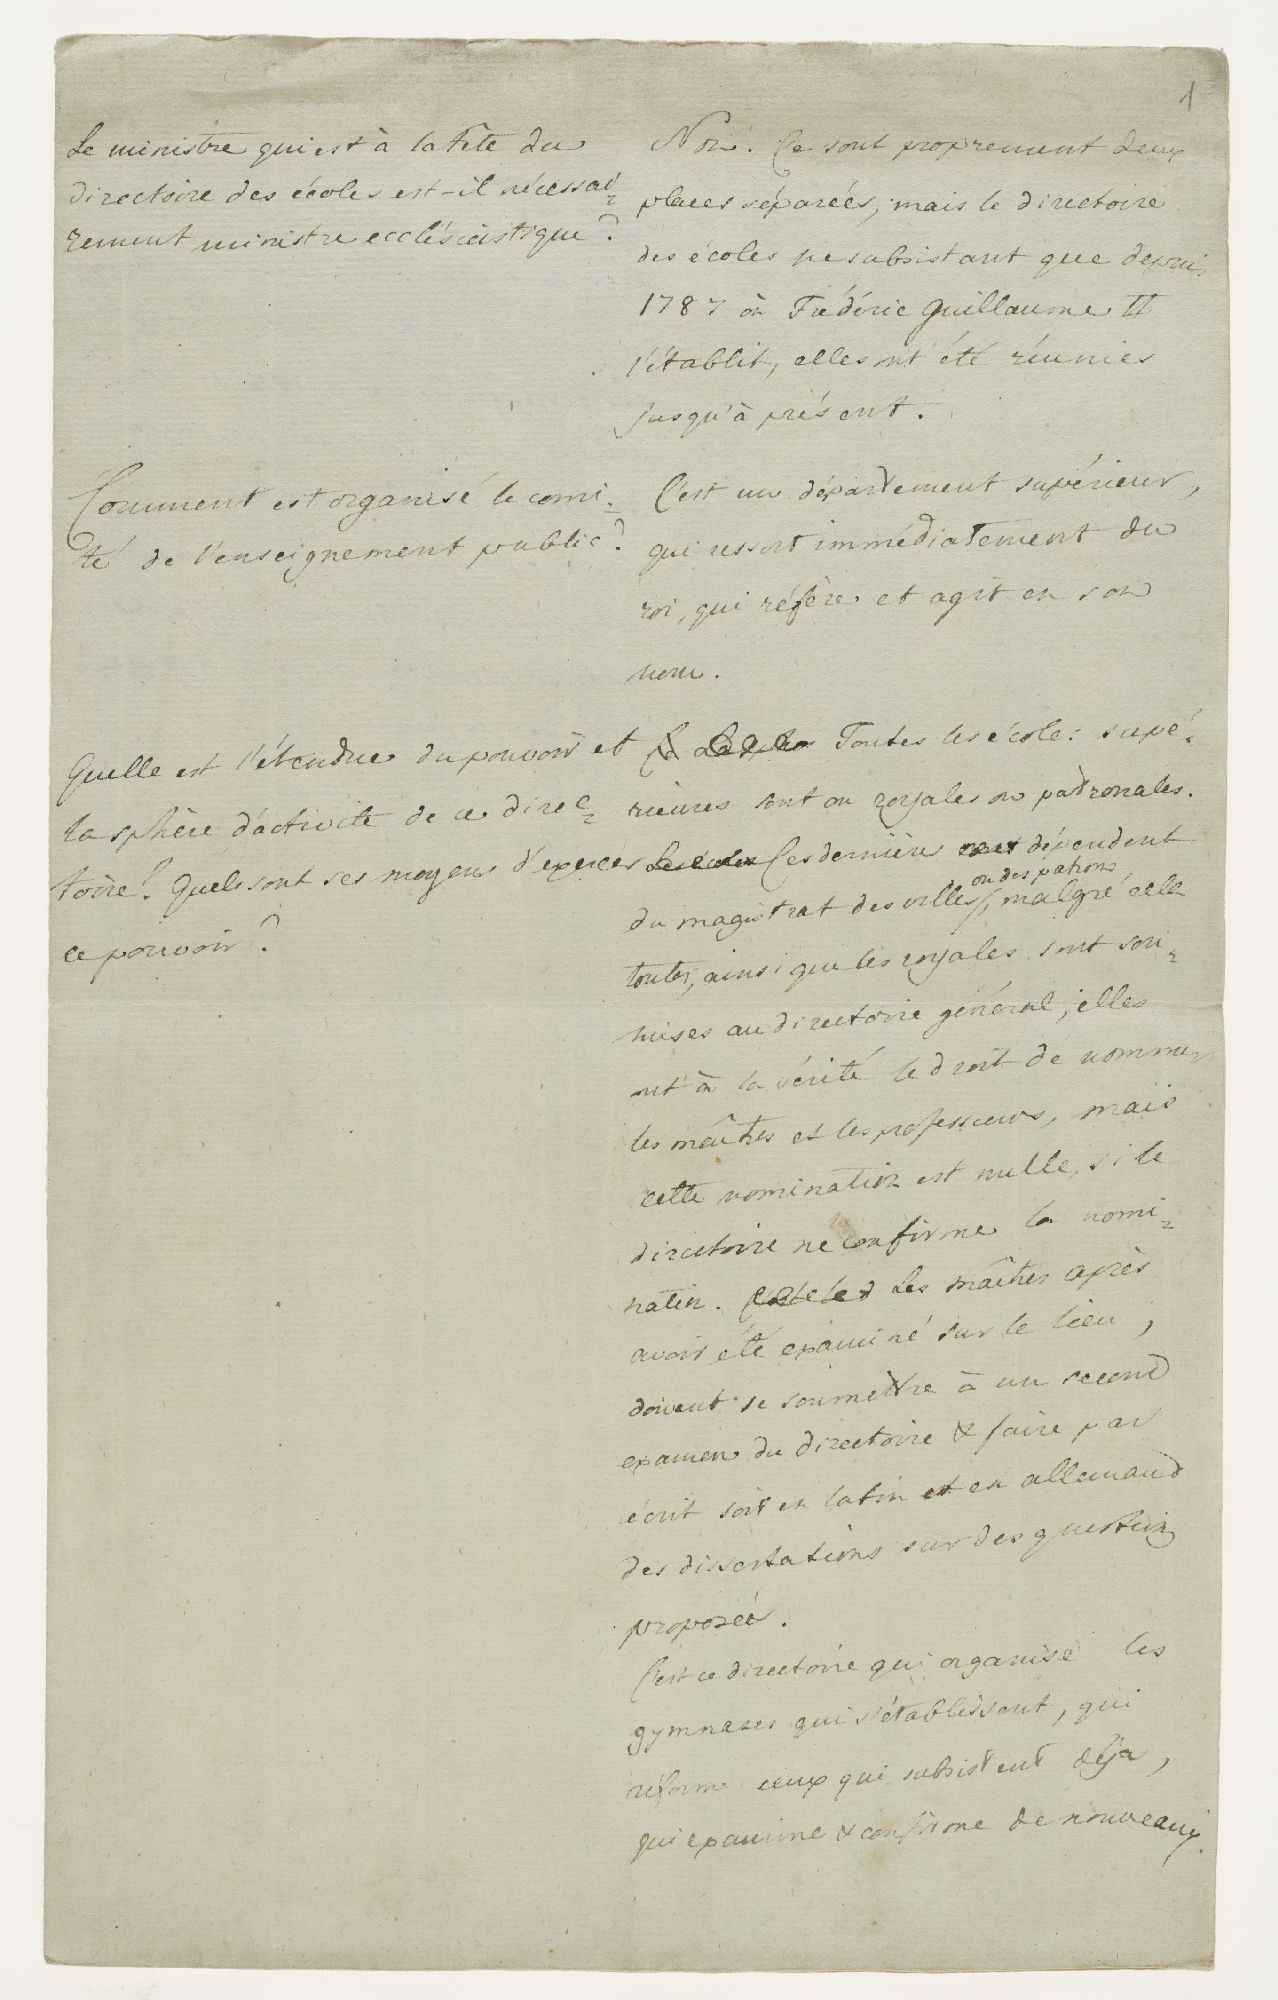 1
Le ministre qui est à la tête du
directoire des écoles est-il nécessai=
rement ministre ecclésiastique?
Non. Ce sont proprement deux
places séparées, mais le directoire
des écoles ne subsistant que depuis
1787 où Frédéric Guillaume II
l'établit, elles ont été réunies
jusqu'à présent.
Comment est organisé le comi=
té de l'enseignement public?
C'est un département supérieur,
qui ressort immédiatement du
roi, qui réfère et agit en son
nom.
Quelle est l'étendue du pouvoir et
la sphère d'activité de ce direc=
toire? Quels sont ses moyens d'exercer
ce pouvoir?
Toutes les écoles supé=
rieures sont ou royales ou patronales.
Ces dernières dépendent
ou des patrons
du magistrat des villes, malgré cela
toutes, ainsi que les royales sont sou=
mises au directoire général; elles
ont à la vérité le droit de nommer
les maîtres et les professeurs, mais
cette nomination est nulle, si le
directoire ne confirme la nomi=
nation. Les maîtres après
avoir été examiné sur le lieu,
doivent se soumettre à un second
examen du directoire & faire par
écrit soit en latin et en allemand
des dissertations sur des questions
proposées.
C'est ce directoire qui organise les
gymnases qui s'établissent, qui
réforme ceux qui subsistent déja,
qui examine & confirme de nouveaux